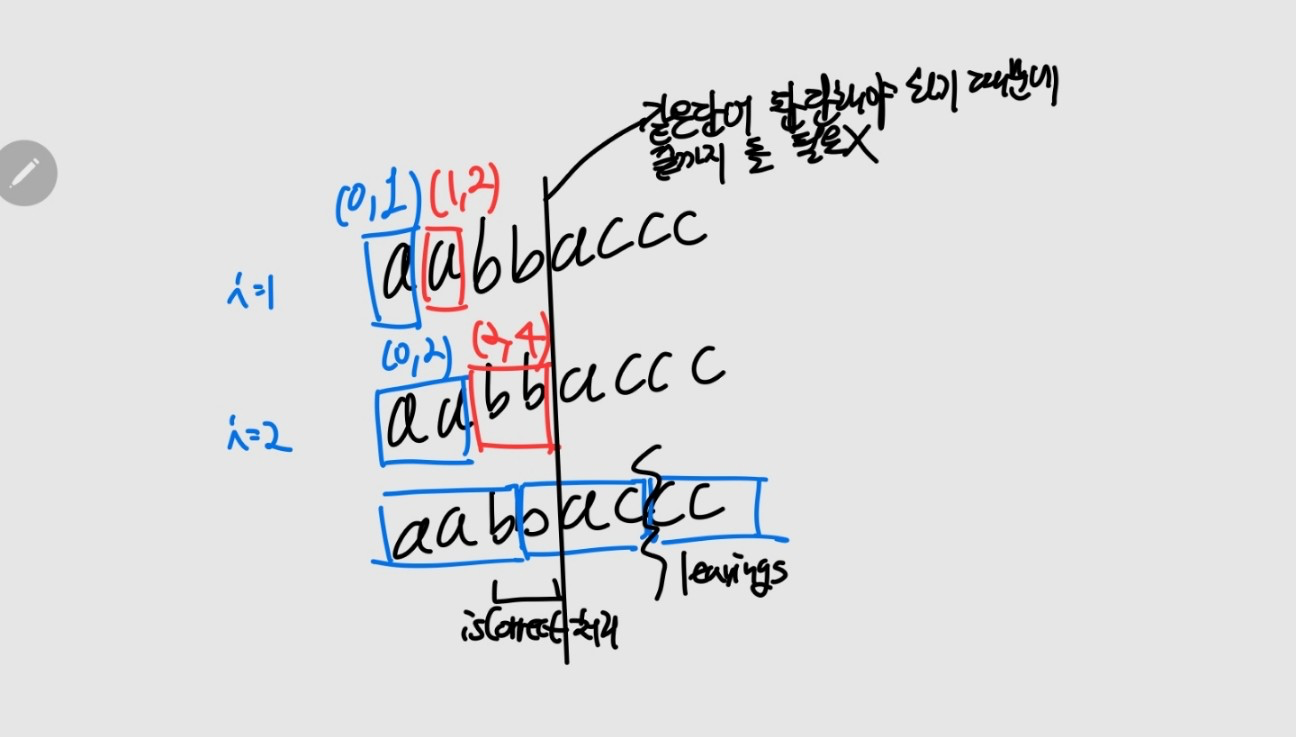 같은단어 판단해야 되기 때문에
끝까지 돌 필요X
(0,1) (1,2)
i=1 aabbaccc
(0,2) (2,4)
i=2 aabbaccc
aabbaccc
leavings
isCorrect 처리